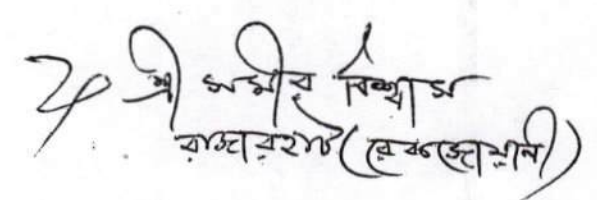 ২৮ শ্রী সমীর বিশ্বাস
রাজারহাট (রেকজোয়ানী)